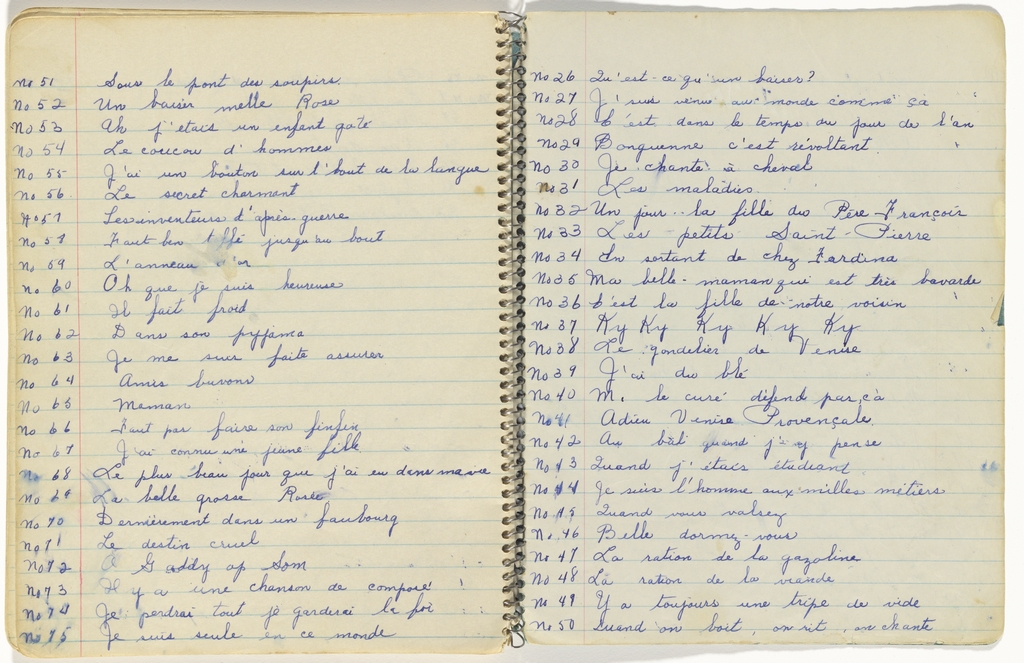 No 51 Sous le pont des soupirs.
No 52 Un baiser melle Rose
No 53 Ah j'etais un enfant gaté
No 54 Le coucou d'hommes
No 55 J'ai un bouton sur l'bout de la langue
No 56 Le secret charmant
No 57 Les inventeurs d'après-guerre
No 58 Faut ben jusqu'au bout
No 59 L'anneau d'or
No 60 Oh que je suis heureuse
No 61 Il fait froid
No 62 Dans son pyjama
No 63 Je me suis faite assurer
No 64 Amis buvons
No 65 Maman
No 66 Faut pas faire son finfin
No 67 J'ai connu une jeune fille
No 68 Le plus beau jour que j'ai eu dans ma vie
No 69 La belle grosse Rosée
No 70 Dernièrement dans un faubourg
No 71 Le destin cruel
No 72 O Gaddy op Som
No 73 Il y a une chanson de composé
No 74 Je perdrai tout je garderai la foi
No 75 Je suis seule en ce monde
No 26 Qu'est-ce qu'un baiser?
No 27 J'suis venu au monde comme ça
No 28 C'est dans le temps du jour de l'an
No 29 Borguenne c'est révoltant
No 30 Je chante à cheval
No 31 Les maladies
No 32 Un jour la fille du Père François
No 33 Les petits Saint-Pierre
No 34 En sortant de chez Fardina
No 35 Ma belle-maman qui est très bavarde
No 36 C'est la fille de notre voisin
No 37 Ky Ky Ky Ky Ky
No 38 Le gondelier de Venise
No 39 J'ai du blé
No 40 M. le curé défend pas çà
No 41 Adieu Venise Provençale
No 42 Au bal quand j'y pense
No 43 Quand j'étais étudiant
No 44 Je suis l'homme aux milles métiers
No 45 Quand vous valsez
No 46 Belle dormez-vous
No 47 La ration de la gazoline
No 48 La ration de la viande
No 49 Y a toujours une tripe de vide
No 50 Quand on boit, on rit, on chante